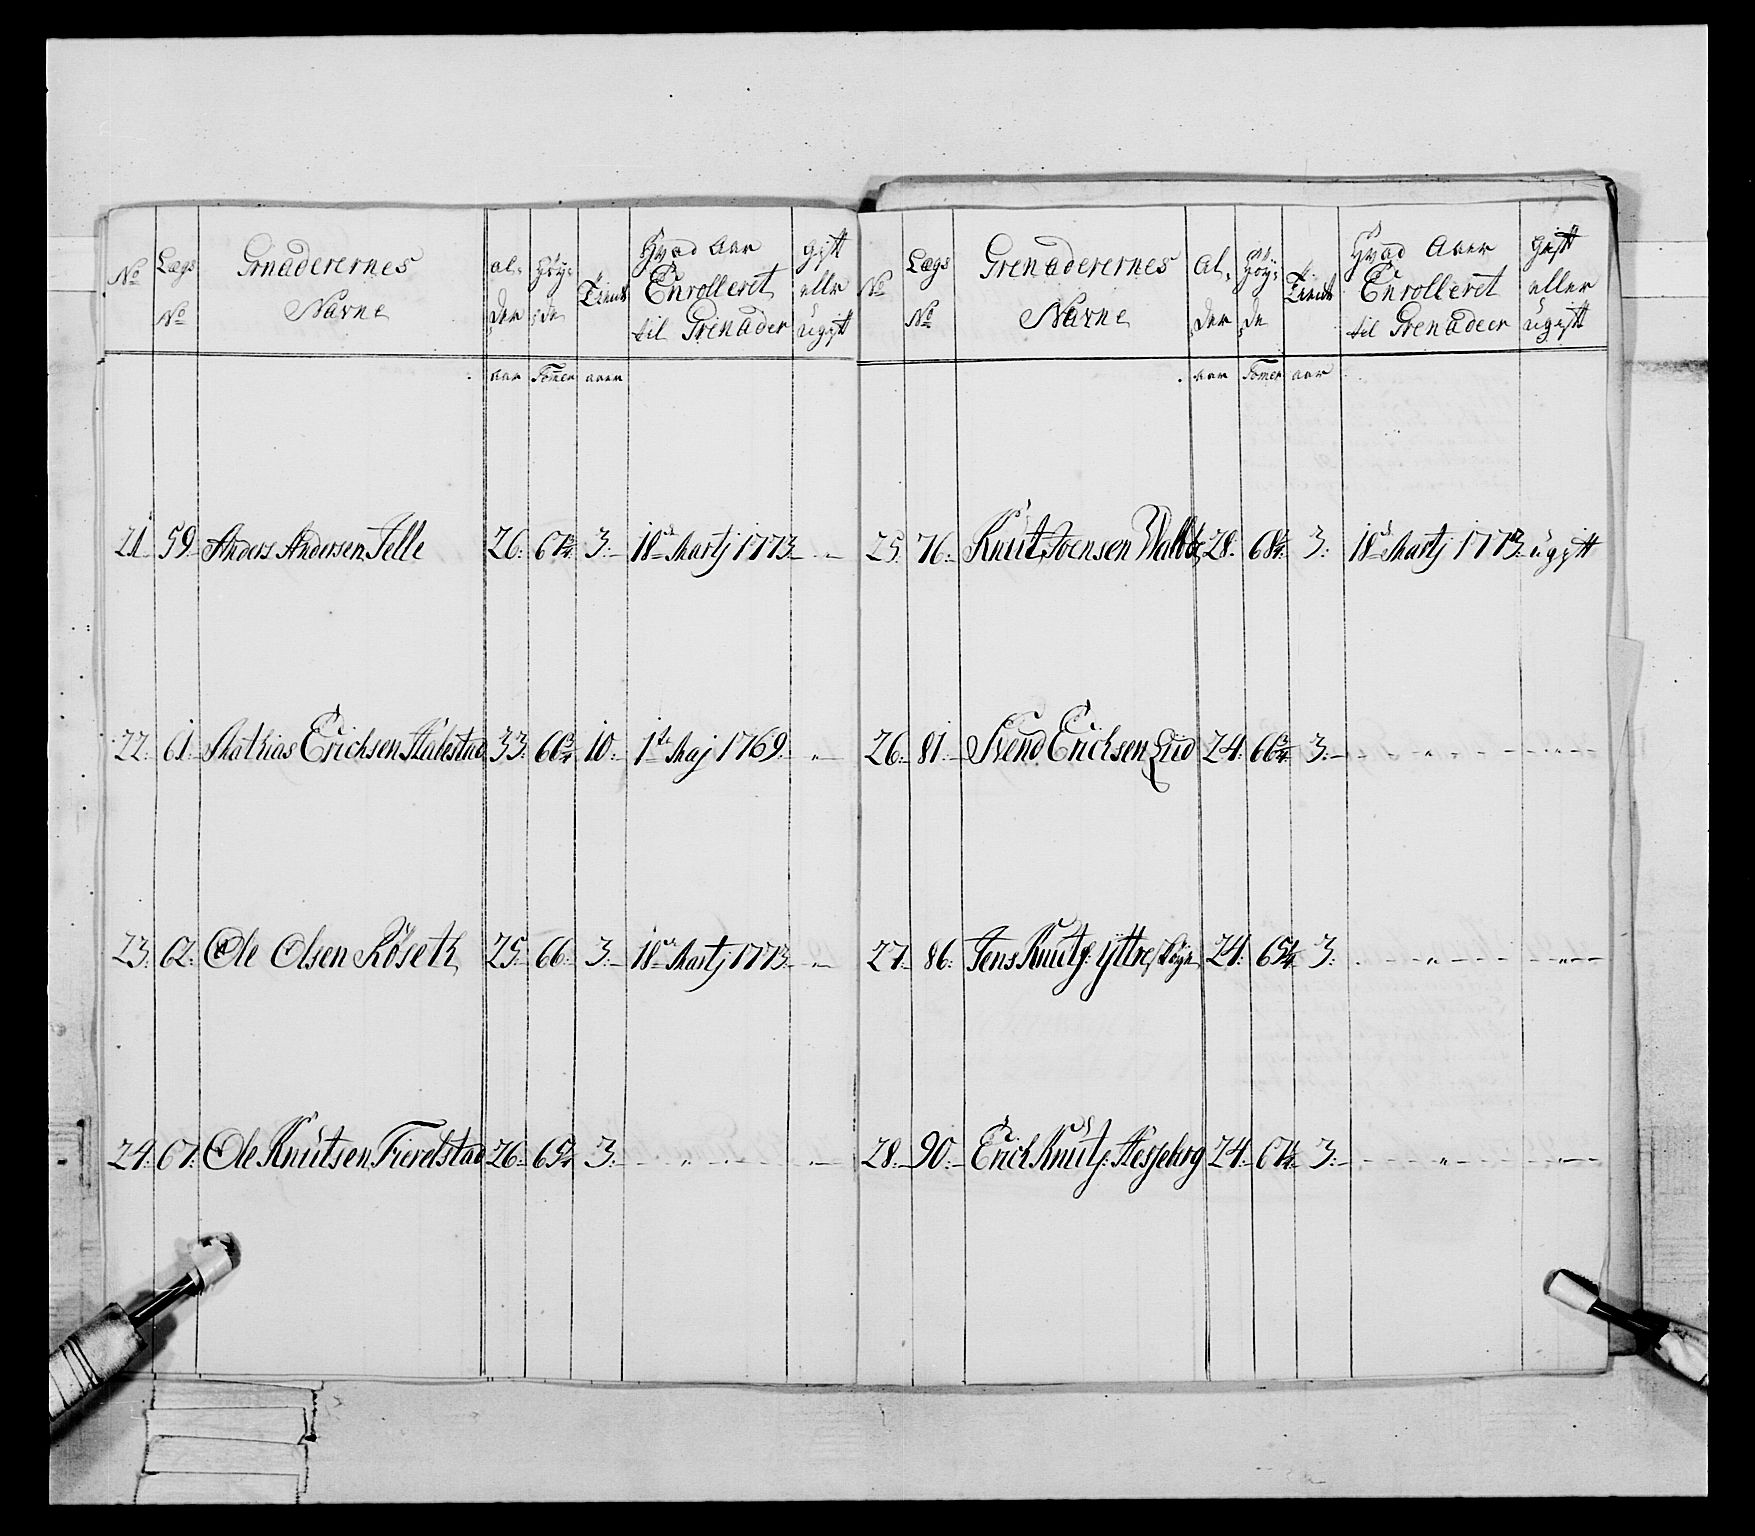 No Lægs No Grnaderernes Navne al- der Høy- de Tient Hvad Aar Enrolleret til Grenader gift eller ugift
aar Tomer aar
21 59 Anders Andersen Selle 26 67 3/4 3 18de Martj 1773 "
22 61 Mathias Erichsen 33 66 3/4 10 1ste Maj 1769 "
23 62 Ole Olsen Röseth 25 66 3 18de Martj 1773 "
24 67 Ole Knutsen 26 3 " "
No Lægs No Grenaderernes Navne Al- der Høy- de Tient Hvad Aaer Enrolleret til Grenadeer gift eller ugift
aar Tomer aar
25 76 Knut Joensen 28 3 18de Martj 1773 ugift
26 81 Svend Erichsen Lüd 24 66 3/4 3 " "
27 86 Jens Knuts: yttre 24 3 " "
28 90 Erich Knuts: 24 3 " "